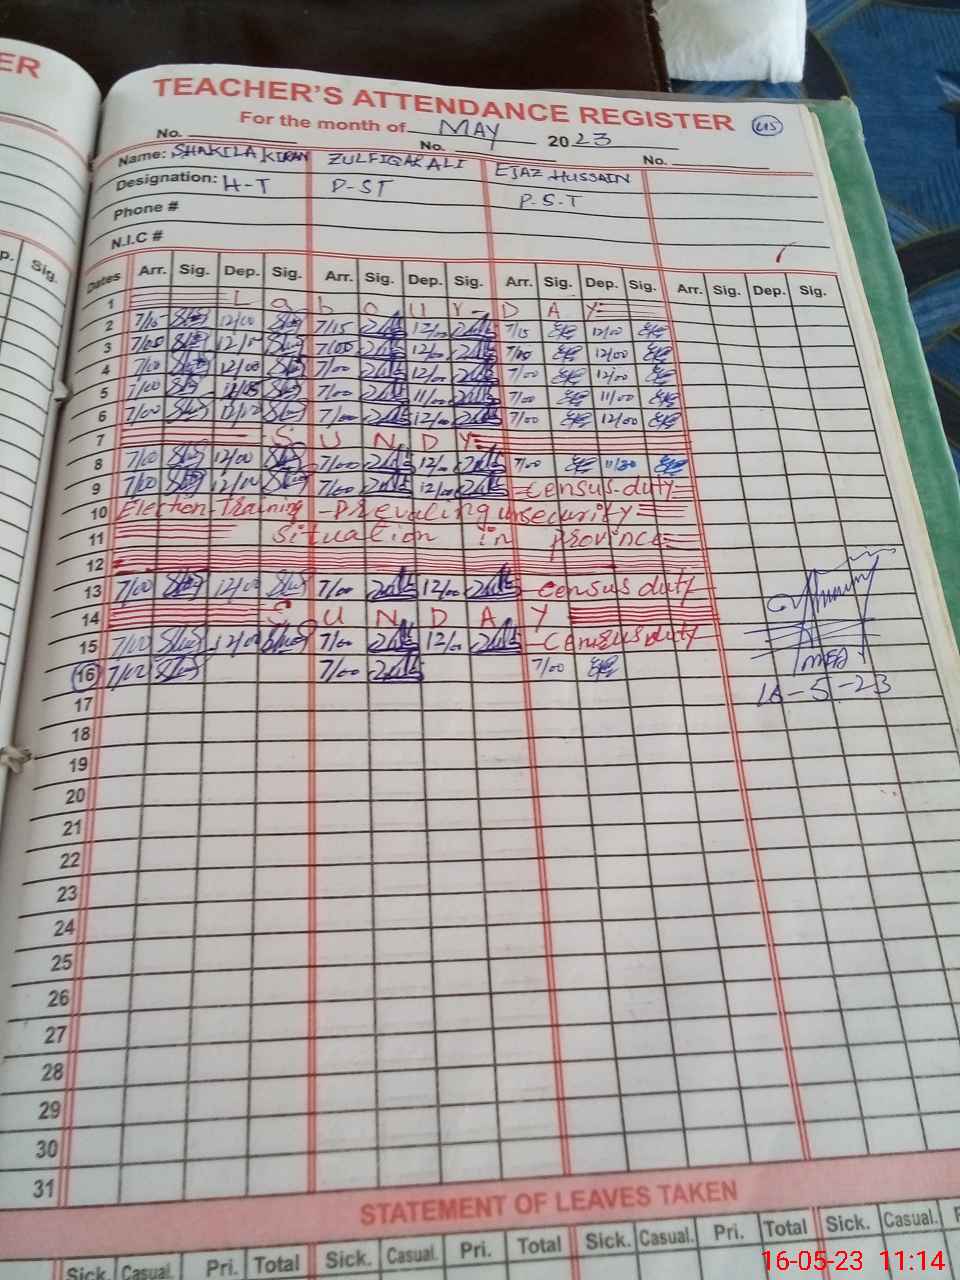 ER
TEACHER'S ATTENDANCE REGISTER
For the month of MAY 2023
No. No. No.
Name: SHAKILA KIRAN ZULFIQAR ALI EJAZ HUSSAIN
Designation: H-T P-ST P.S.T
Phone #
N.I.C #
p. Sig.
Dates Arr. Sig. Dep. Sig. Arr. Sig. Dep. Sig. Arr. Sig. Dep. Sig. Arr. Sig. Dep. Sig.
1 Labour DAY
2 7/15 12/00 7/15 12/00 7/15 12/00
3 7/00 7/00 12/00 7/00 12/00
4 7/00 12/00 7/00 12/00 7/00 12/00
5 7/00 7/00 11/00 7/00 11/00
6 7/00 7/00 12/00 7/00 12/00
7 SUNDY
8 7/00 12/00 7/00 12/00 7/00 11/30
9 7/00 12/00 7/00 12/00 Census duty
10 Election Training - Prevaling unsecurity
11 Situation in province
12
13 7/00 12/00 7/00 12/00 Census duty
14 SUNDAY
15 7/00 12/00 7/00 12/00 Census duty
16 7/00 7/00 7/00
16-5-23
17
18
19
20
21
22
23
24
25
26
27
28
29
30
31
STATEMENT OF LEAVES TAKEN
Sick. Casual. Pri. Total Sick. Casual. Pri. Total Sick. Casual. Pri. Total Sick. Casual.
16-05-23 11:14